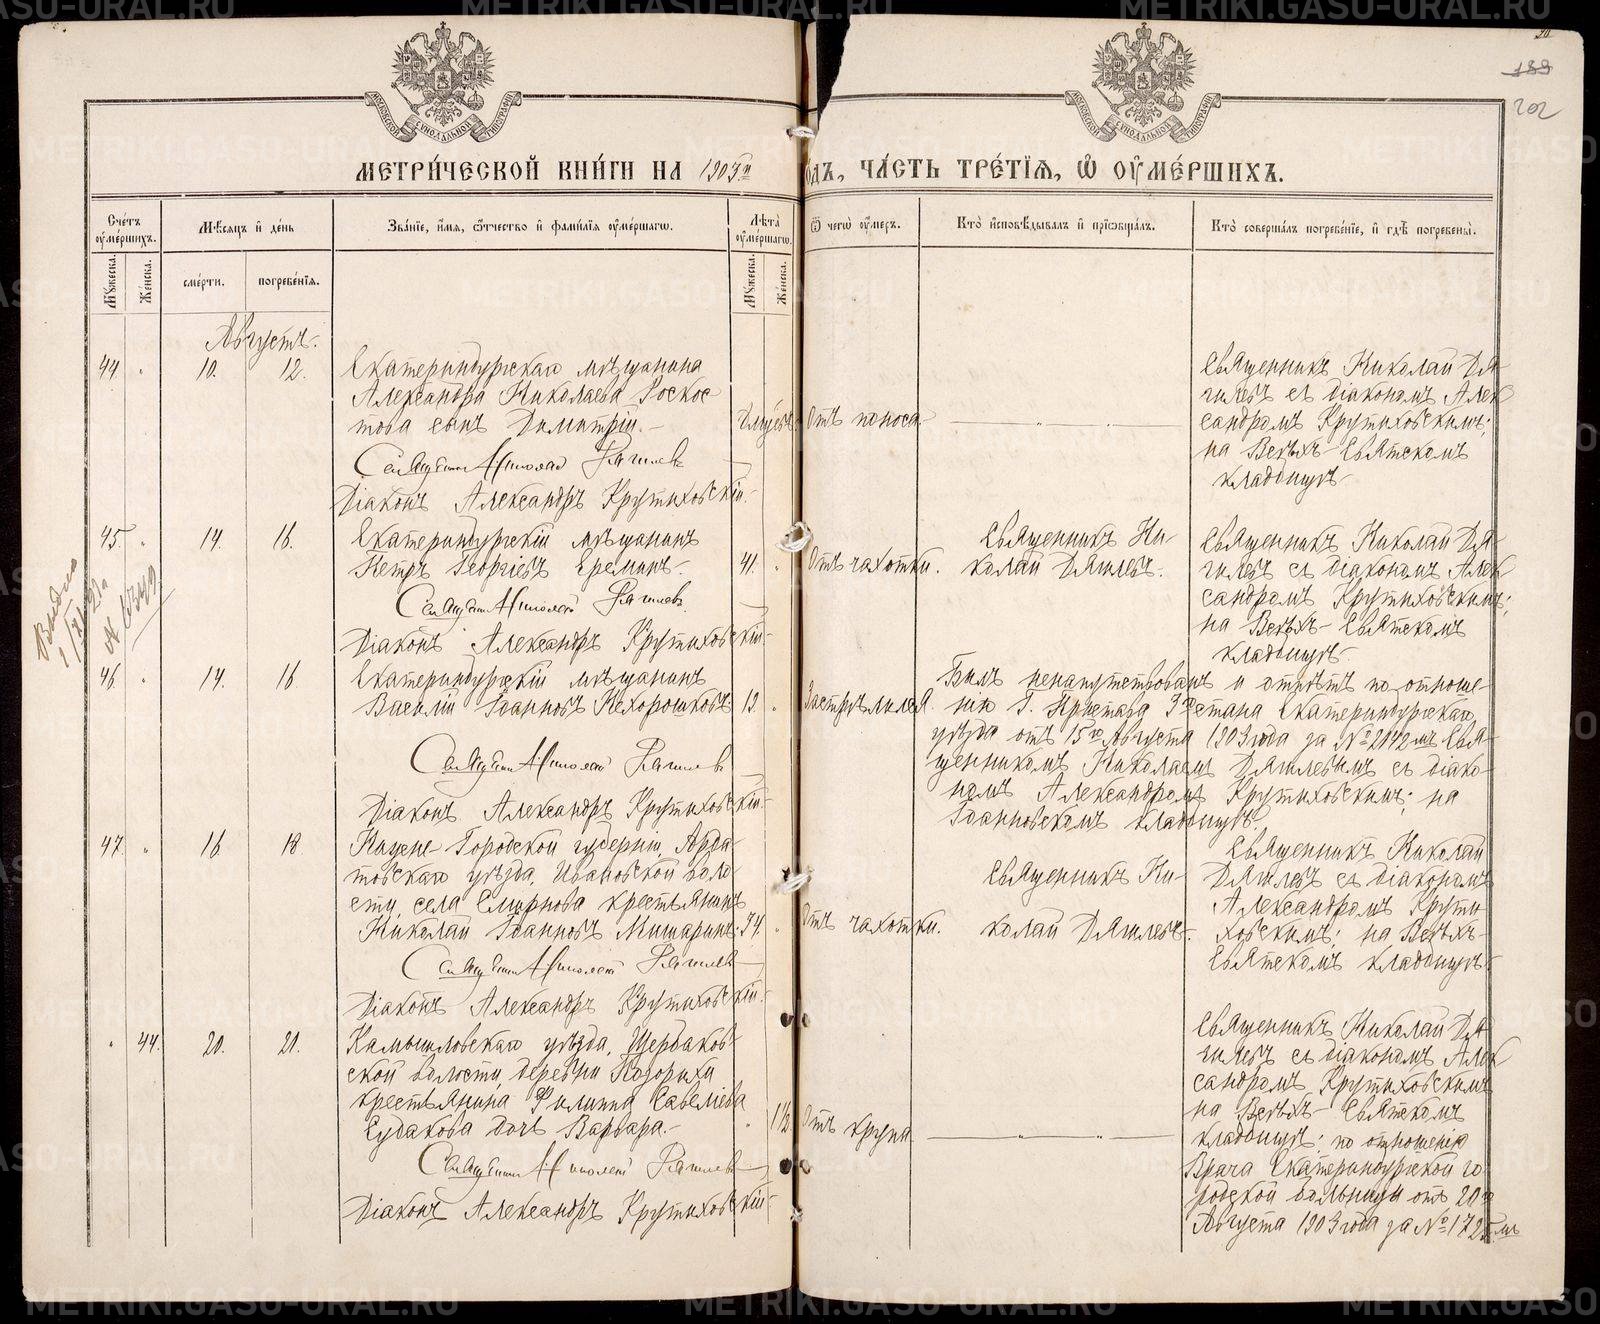 МЕТРИ́ЧЕСКОЙ КНИ́ГИ НА 1903й
ГО́ДЪ, ЧА́СТЬ ТРЕ́ТІЯ, Ѿ ОУМЕ́РШИХЪ.
189
202
Сче́тъ оуме́ршихъ.
Мꙋжеска.
Же́нска.
Мѣ́сяцъ и҆ де́нь
сме́рти.
погребе́нія.
Зва́ніе, и҆́мя, ѻ҆́тчество и҆ фами́лія оуме́ршагѡ.
Лѣ́та оуме́ршагѡ.
Мꙋжеска.
Же́нска.
Ѿ чегѡ̀ оу҆́меръ.
Кто̀ и҆сповѣ́дывалъ и҆ пріѡбща́лъ.
Кто̀ соверша́лъ погребе́ніе, и҆ гдѣ̀ погребены̀.
Августъ.
44. " 10. 12.
Екатеринбургскаго мѣщанина
Александра Николаева Роскос
това сынъ Димитрій.
Священникъ Николай Дягилевъ
Діаконъ Александръ Крутиховскій.
Отъ поноса.
Священникъ Николай Дя-
гилевъ съ діакономъ Алек
сандромъ Крутиховскимъ;
на Всѣхъ-Святскомъ
кладбищѣ.
45. " 14. 16.
Екатеринбургскій мѣщанинъ
Петръ Георгіевъ Ереминъ.
41.
Священникъ Николай Дягилевъ
Діаконъ Александръ Крутиховскій.
Отъ чахотки.
Священникъ Ни-
колай Дягилевъ.
Священникъ Николай Дя-
гилевъ съ діакономъ Алек
сандромъ Крутиховскимъ;
на Всѣхъ-Святскомъ
кладбищѣ.
46. " 14. 16
Екатеринбургскій мѣщанинъ
Василій Іоанновъ Нехорошковъ
19. "
Священникъ Николай Дягилевъ
Діаконъ Александръ Крутиховскій.
Застрѣлился.
Былъ ненапутствованъ и отпѣтъ по отноше-
нію Г. Пристава 3го стана Екатеринбургскаго
уѣзда отъ 15го Августа 1903 года за № 2142мъ Свя-
щенникомъ Николаемъ Дягилевымъ съ діако-
номъ Александромъ Крутиховскимъ; на
Іоанновскомъ кладбищѣ.
47. " 16 18
Городской губерніи, Арда-
товскаго уѣзда, Ивановской воло
сти, села Смирнова крестьянинъ
Николай Іоанновъ Мишаринъ.
34. "
Священникъ Николай Дягилевъ
Діаконъ Александръ Крутиховскій.
Отъ чахотки.
Священникъ Ни-
колай Дягилевъ.
Священникъ Николай
Дягилевъ съ діакономъ
Александромъ Крути
ховскимъ; на Всѣхъ-
Святскомъ кладбищѣ.
" 44. 20. 21.
Камышловскаго уѣзда, Щербаков-
ской волости, деревни
крестьянина Филиппа Савеліева
Судакова дочь Варвара.
Священникъ Николай Дягилевъ
Діаконъ Александръ Крутиховскій.
Отъ крупа
Священникъ Николай Дя
гилевъ съ діакономъ Алек
сандромъ Крутиховскимъ
на Всѣхъ-Святскомъ
кладбищѣ; по отношенію
Врача Екатеринбургской го
родской больницы отъ 20го
Августа 1903 года за № 1725мъ
METRIKI.GASO-URAL.RU